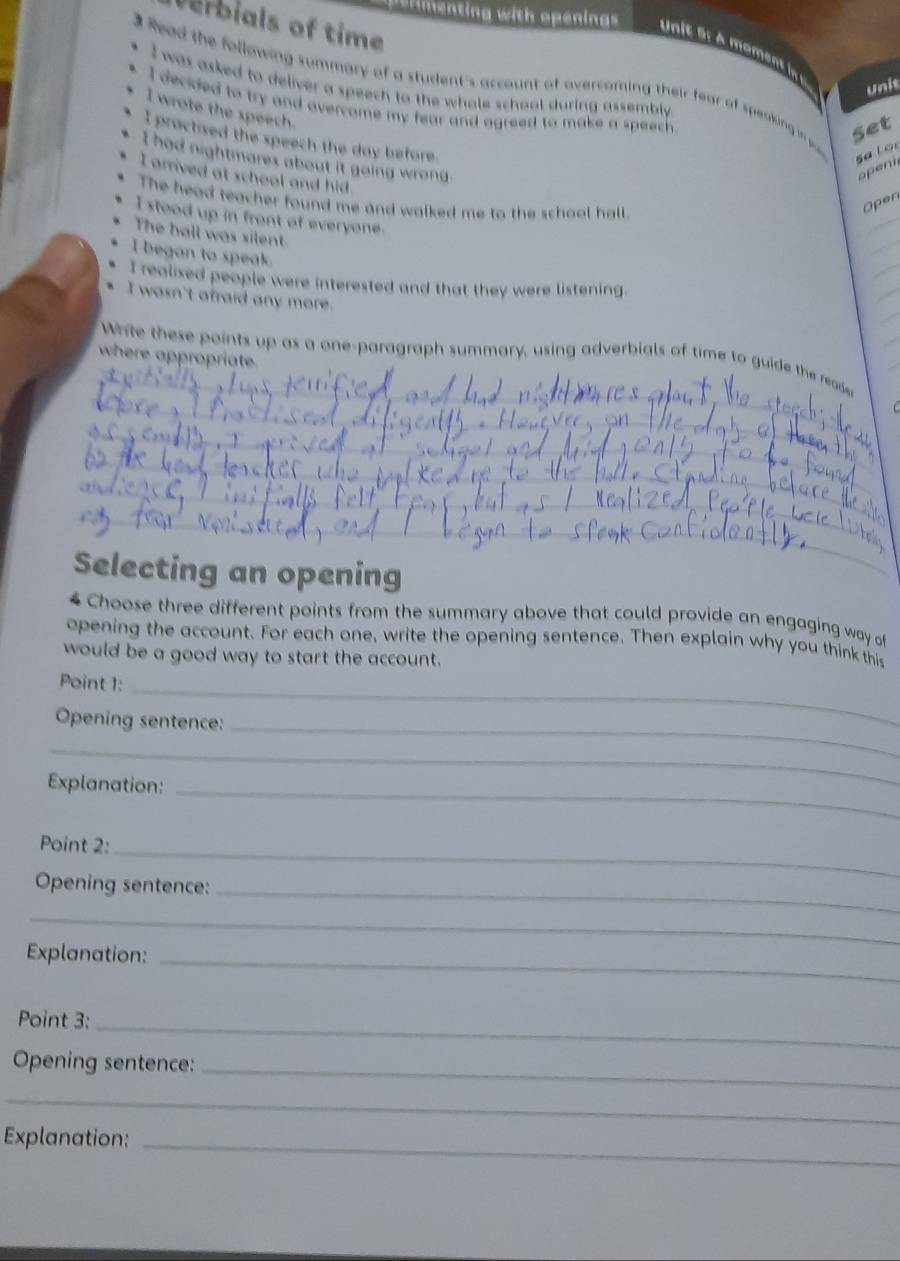 menting with openings
Unit 5: A moment in
verbials of time
3 Read the following summary of a student's account of overcoming their fear of speaking in
• I was asked to deliver a speech to the whole school during assembly.
• I decided to try and overcome my fear and agreed to make a speech.
• I wrote the speech.
• I practised the speech the day before.
• I had nightmares about it going wrong.
• I arrived at school and hid.
• The head teacher found me and walked me to the school hall.
• I stood up in front of everyone.
• The hall was silent.
• I began to speak.
• I realised people were interested and that they were listening.
• I wasn't afraid any more.
Write these points up as a one-paragraph summary, using adverbials of time to guide the reader
where appropriate.
initially, I was terrified and had nightmares about the speech; the day
before, I practised diligently. However, on the day of the
assembly, I arrived at school and hid, only to be found
by the head teacher who walked me to the hall. Standing before the
audience, I initially felt fear, but as I realized people were listening
my fear vanished, and I began to speak confidently.
Selecting an opening
4 Choose three different points from the summary above that could provide an engaging way of
opening the account. For each one, write the opening sentence. Then explain why you think this
would be a good way to start the account.
Point 1:
Opening sentence:
Explanation:
Point 2:
Opening sentence:
Explanation:
Point 3:
Opening sentence:
Explanation:
Unit
Set
5a Loo
openi
Open